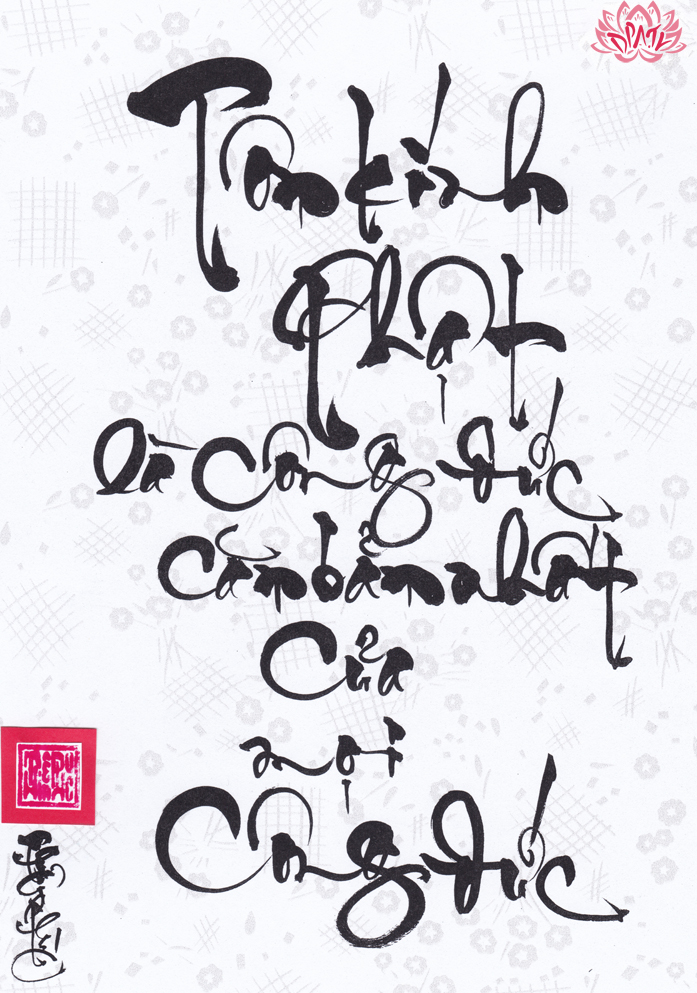 DPATK
Tôn kính
Phật
là Công Đức
căn bản nhất
Của
mọi
Công Đức